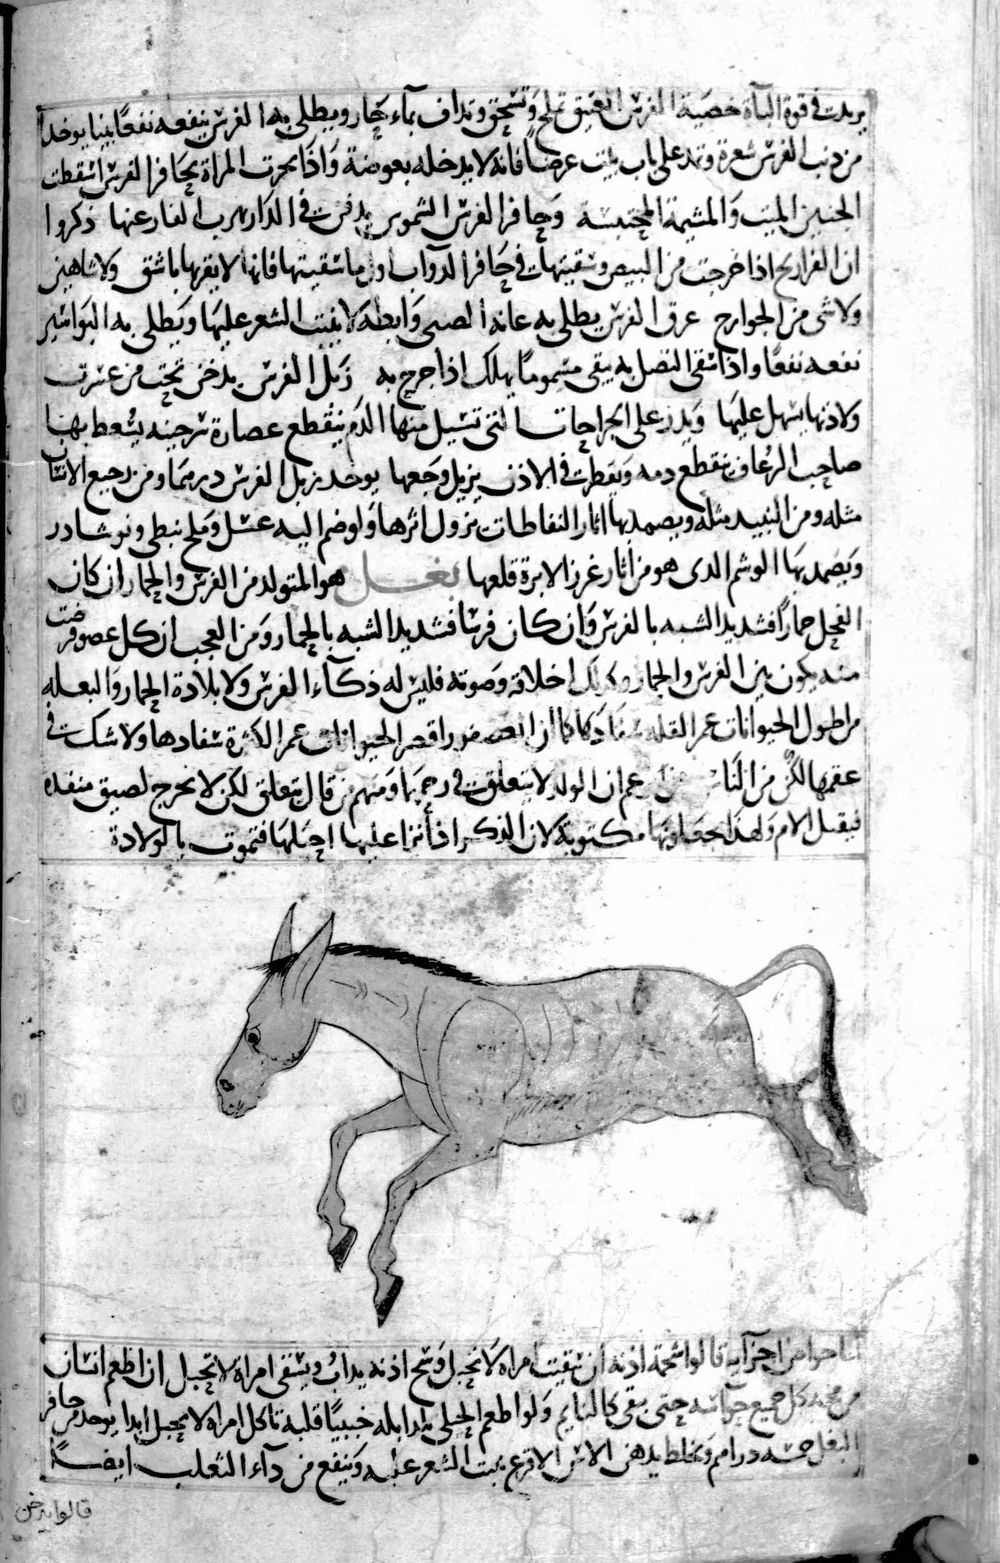 يزيد في قوة الباة خصية الفرس العتيق تملح وتسحق وتداف بماء حار ويطلى به الفرس ينفعه نفعا بينا يوخد
من ذنب الفرس شعرة وتمد على باب بيت عرضا فانه لا يدخله بعوضة واذا بخرت المراة بحافر الفرس اسقطت
الجنين الميت والمشيمة المحتبسة وحافر الفرس الشموس يدفن في الدار يهرب الفار عنها ذكروا
ان الفراريج اذا خرجت من البيض وسقيتها في حافر الدواب اول ما سقيتها فانها لا يقربها باشق ولا شاهين
ولا شى من الجوارح عرق الفرس يطلى به عانة الصبى وابطه لا ينبت الشعر عليها ويطلى به البواسير
نفعه نفعا واذا سقى النصل به يبقى مسموما يهلك اذا جرح به زبل الفرس يدخن تحت من عسرت
ولادتها يسهل عليها ويذر على الجراحات التى تسيل منها الدم ينقطع عصارة سرجينه يسعط بها
صاحب الرعاف ينقطع دمه ويقطر في الاذن يزيل وجعها يوخد زبل الفرس درهما ومن رجيع الانسان
مثله ومن النبيد مثله ويضمد بها اثار النفاطات يزول اثرها ولو ضم اليه عسل وملح نبطى ونوشادر
ويضمد بها الوشم الدى هو من اثار غرز الابرة قلعها بغل هو المتولد من الفرس والحمار ان كان
الفحل حمارا فشديد الشبه بالفرس وان كان فرسا فشديد الشبه بالحمار ومن العجب ان كل عضو فرضت
منه يكون بين الفرس والحمار وكدلك اخلاقه وصوته فليس له ذكاء الفرس ولا بلادة الحمار والبغله
من اطول الحيوانات عمرا لقله سفاد كما ان العصفور اقصر الحيوانات عمرا لكثرة سفادها ولا شك في
عقمها لكن من الناس من زعم ان الولد لا يتعلق في رحمها ومنهم من قال يتعلق لكن لا تخرج لضيق منفده
فيقتل الام ولهذا مكتوبة لان الذكر اذا نزا عليها احبلها فتموت بالولادة
خواص اجزآيه قالوا شحمة اذنه ان سقيت امراه لا تحبل وسخ اذنه يداف ويسقى امراة لا تحبل ان اطعم انسان
من مخه كل جميع حواسه حتى يبقى كالنايم ولو اطعم الحبلى قلبه تاكل امراه لا تحبل ابدا يوخد من حافر
البغل خمسه دراهم ويخلط بدهن الاس الاقرع ينبت الشعر عليه وينفع من دآء الثعلب ايضا
قالوا يدخن